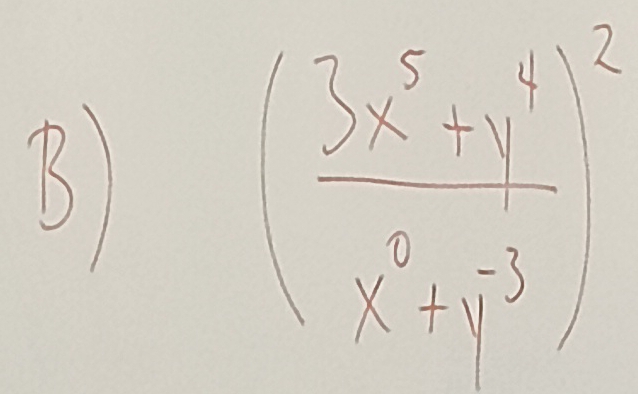 B) (\frac{3x^5 + y^4}{x^0 + y^{-3}})^2